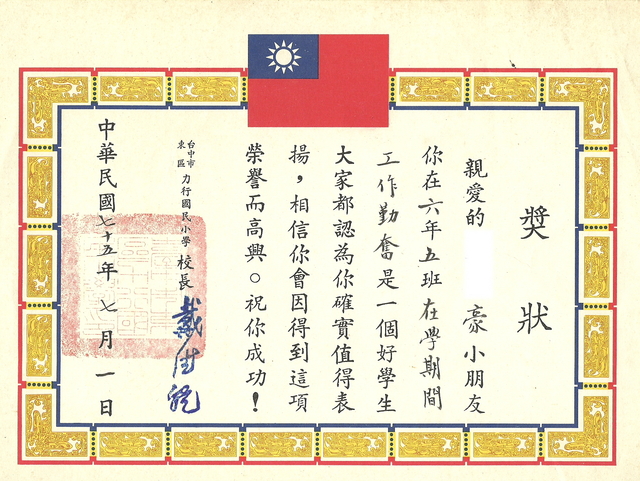 獎狀
親愛的 豪小朋友
你在六年五班在學期間
工作勤奮是一個好學生
大家都認為你確實值得表
揚，相信你會因得到這項
榮譽而高興。祝你成功！
台中市
東區
力行國民小學 校長
中華民國七十五年 七月一日